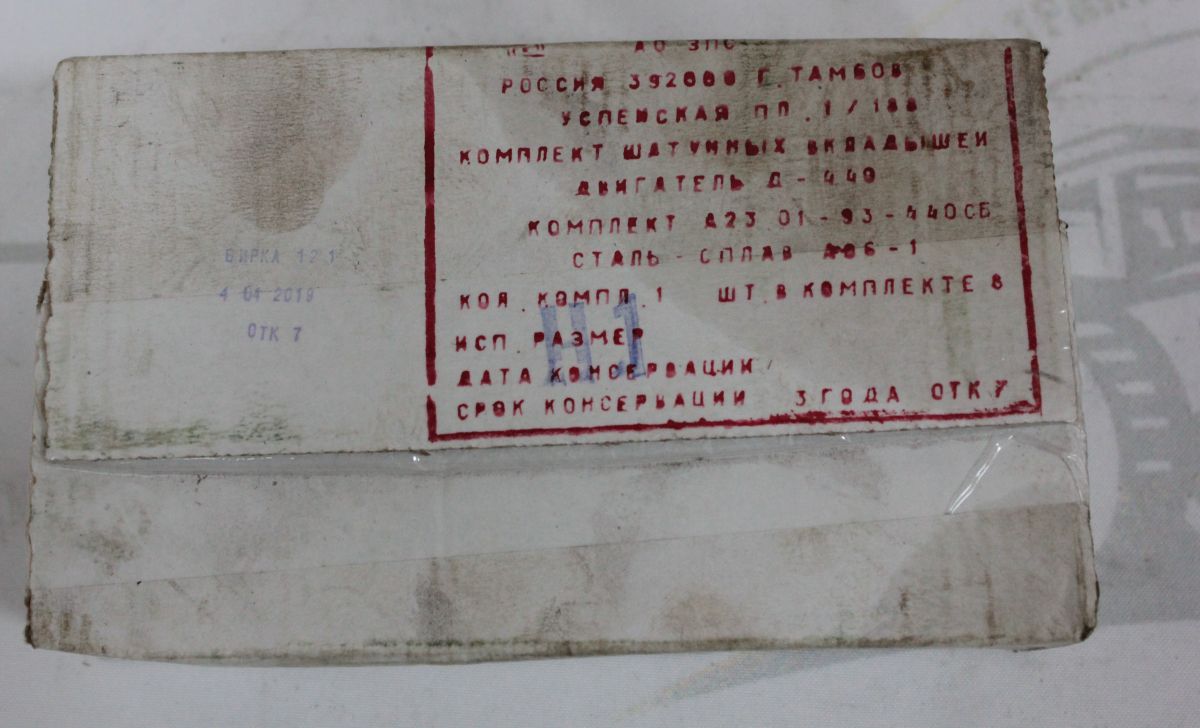 АО ЗПС
РОССИЯ 392000 Г. ТАМБОВ
УСПЕНСКАЯ ПЛ. 1/188
КОМПЛЕКТ ШАТУННЫХ ВКЛАДЫШЕЙ
ДВИГАТЕЛЬ Д-440
КОМПЛЕКТ А23.01-93-440СБ
СТАЛЬ-СПЛАВ АО6-1
КОЛ. КОМПЛ. 1 ШТ. В КОМПЛЕКТЕ 8
ИСП. РАЗМЕР
Н1
ДАТА КОНСЕРВАЦИИ
СРОК КОНСЕРВАЦИИ 3 ГОДА ОТК 7
БИРКА 121
4 04 2019
ОТК 7